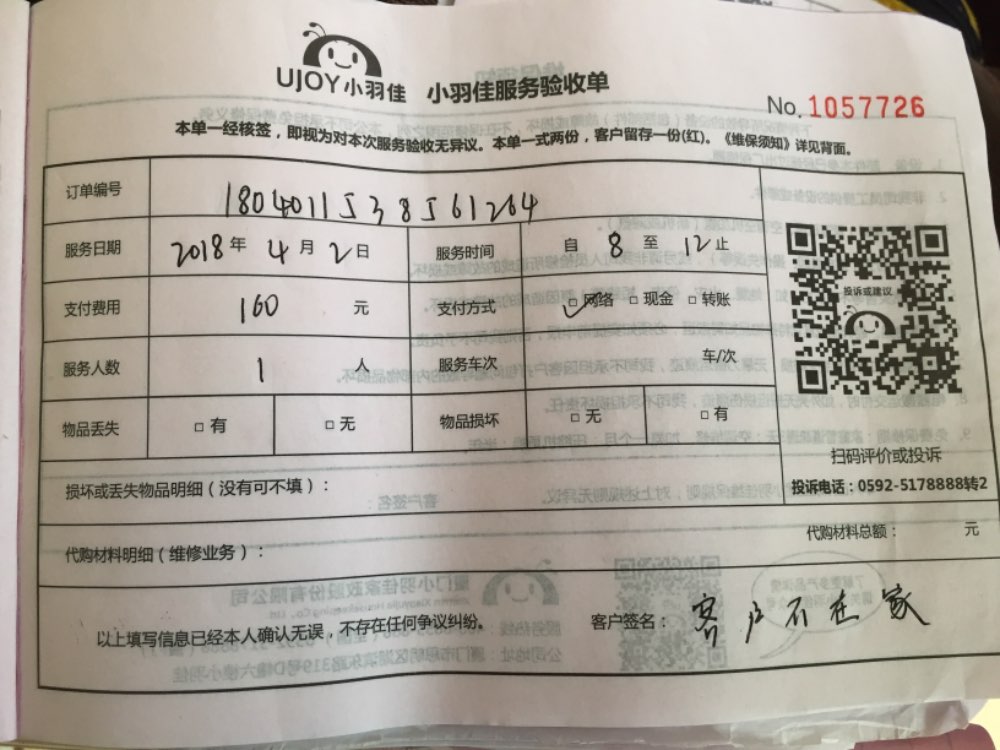 UJOY小羽佳 小羽佳服务验收单
No. 1057726
本单一经核签，即视为对本次服务验收无异议。本单一式两份，客户留存一份(红)。《维保须知》详见背面。
订单编号 1804011538561264
服务日期 2018年 4月 2日 服务时间 自 8 至 12止
支付费用 160 元 支付方式 ☑网络 □现金 □转账
服务人数 1 人 服务车次 车/次
物品丢失 □有 □无 物品损坏 □无 □有
投诉或建议
扫码评价或投诉
投诉电话：0592-5178888转2
损坏或丢失物品明细（没有可不填）：
代购材料明细（维修业务）： 代购材料总额： 元
以上填写信息已经本人确认无误，不存在任何争议纠纷。 客户签名： 客户不在家